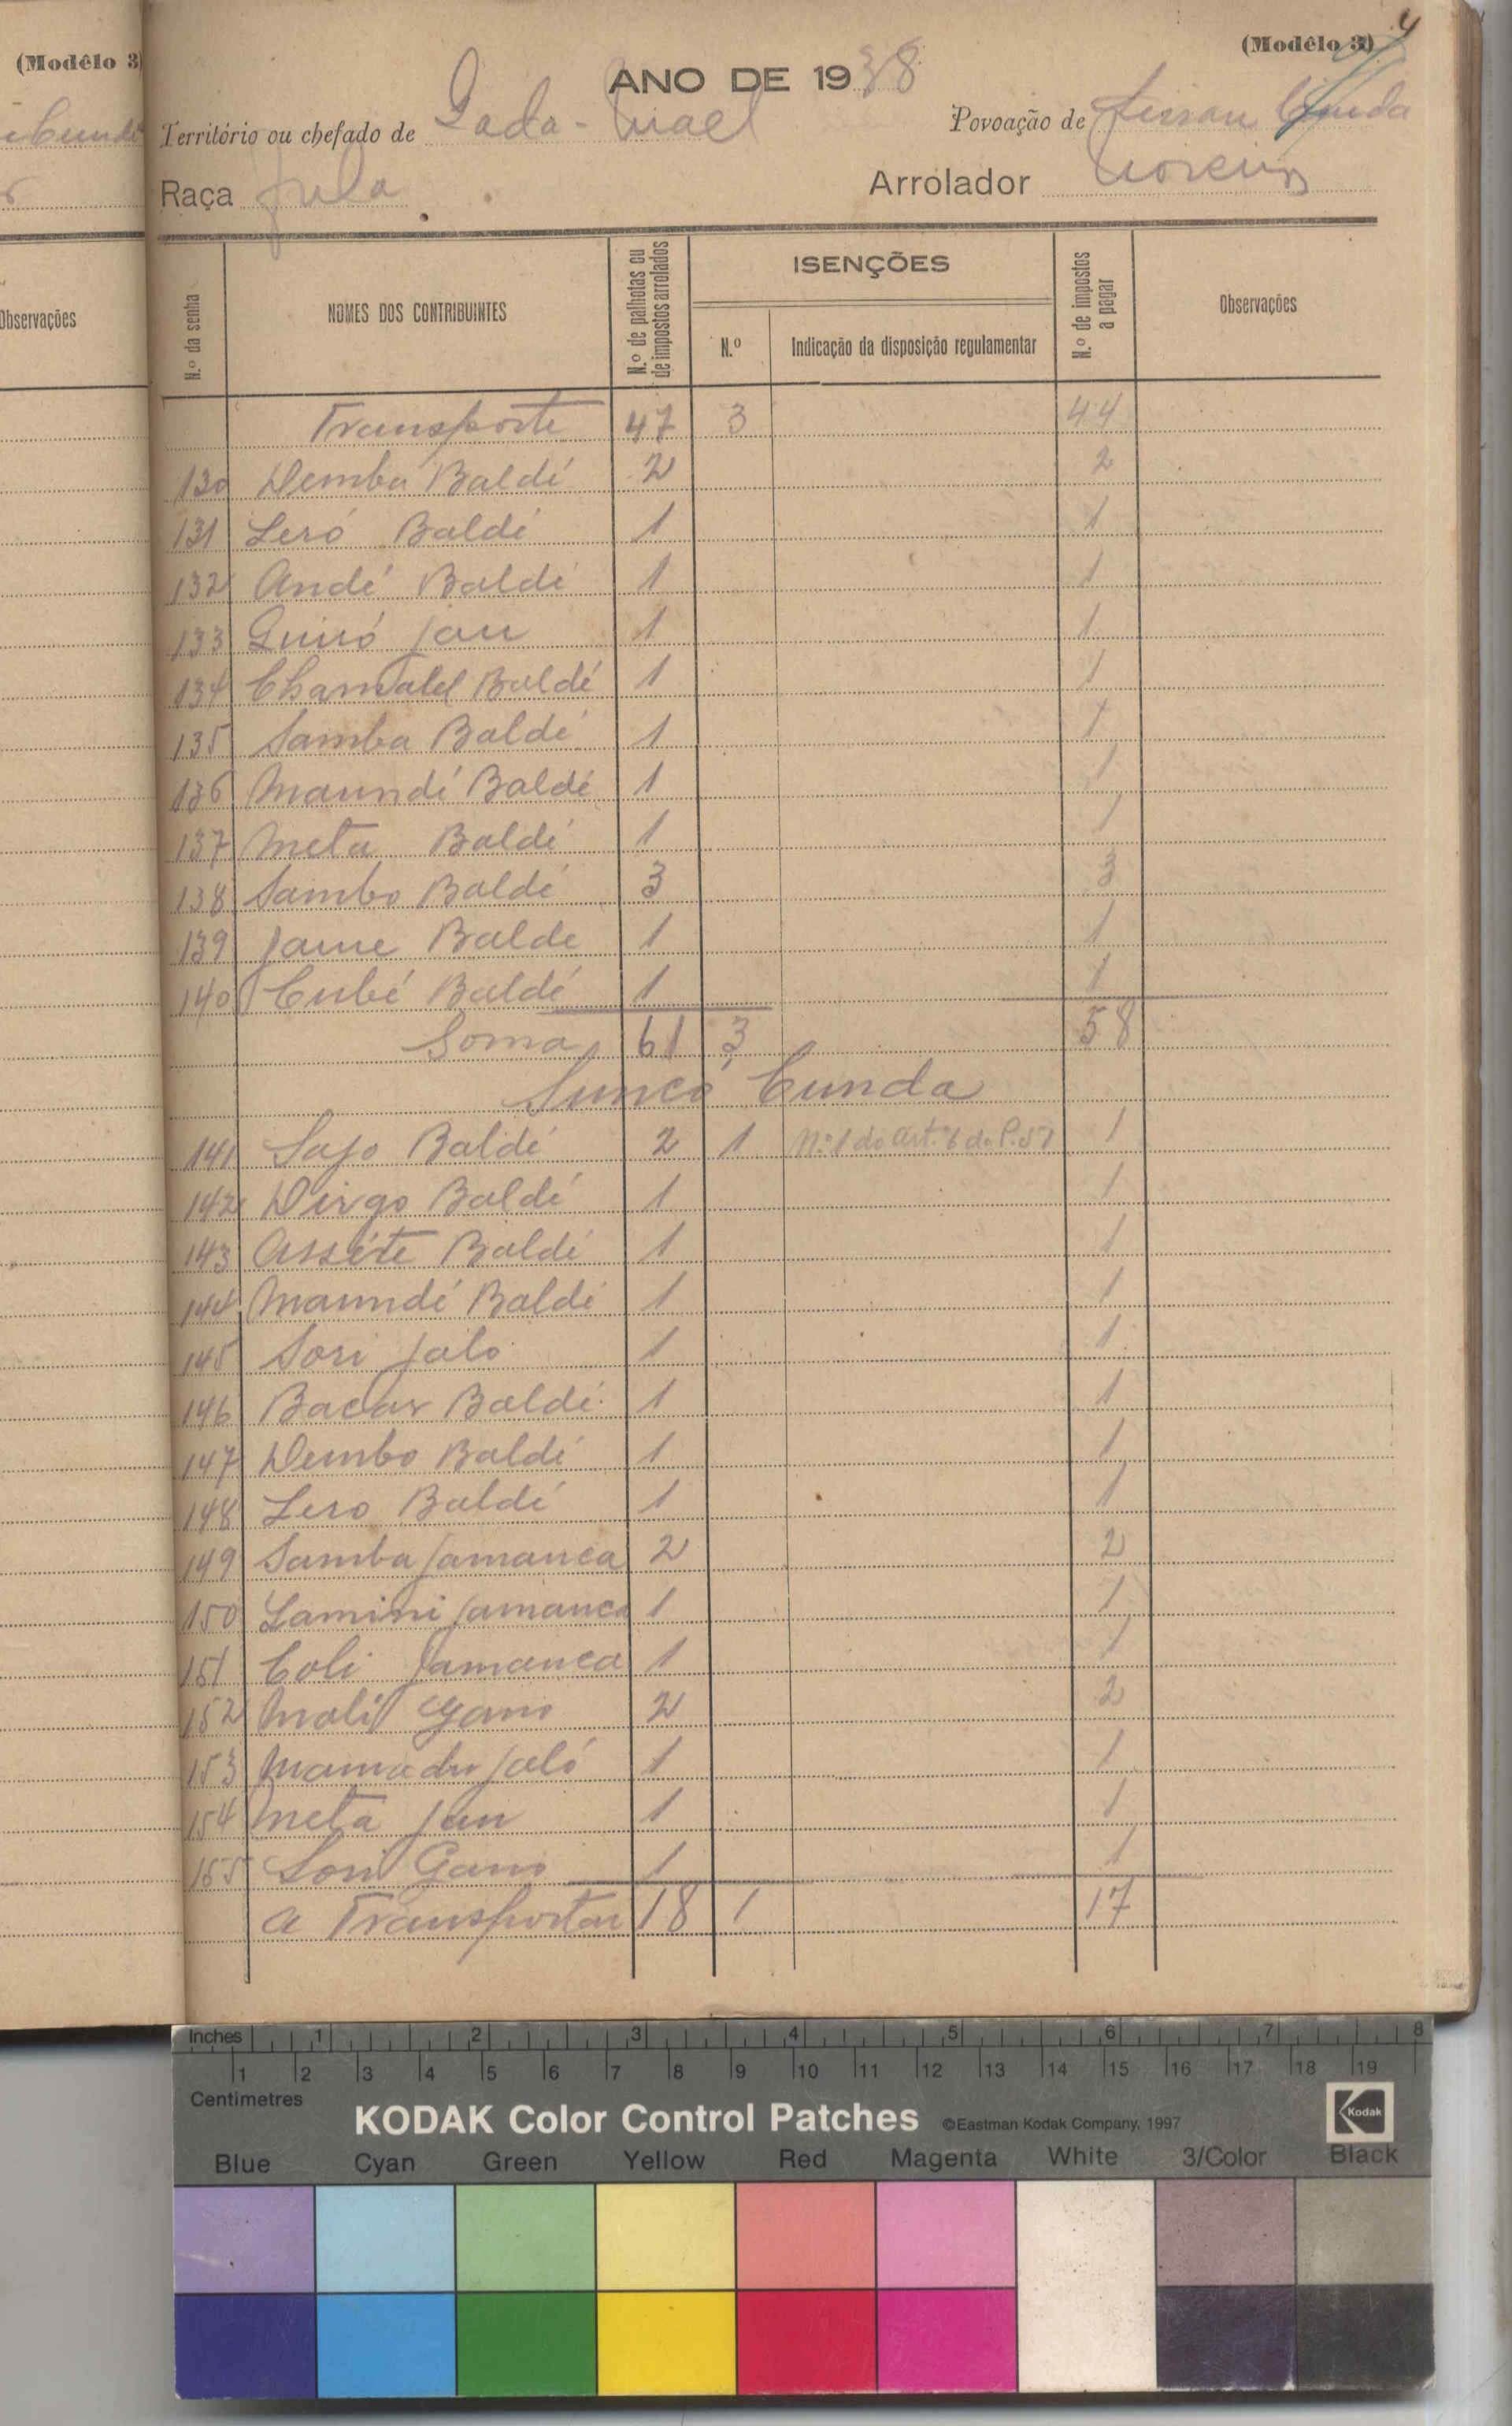 (Modêlo 3)
Observações
4
(Modêlo 3)
ANO DE 1938
Território ou chefado de Gada-Mael Povoação de Sissau Cunda
Raça fula Arrolador Moreira
N.º da senha NOMES DOS CONTRIBUINTES N.º de palhotas ou de impostos arrolados ISENÇÕES N.º de impostos a pagar Observações
N.º Indicação da disposição regulamentar
Transporte 47 3 44
130 Demba Baldé 2 2
131 Leró Baldé 1 1
132 Andé Baldé 1 1
133 Guiró Jau 1 1
134 Baldé 1 1
135 Samba Baldé 1 1
136 Maundé Baldé 1 1
137 Meta Baldé 1 1
138 Sambo Baldé 3 3
139 Jame Balde 1 1
140 Cubé Baldé 1 1
Soma 61 3 58
Suncó Cunda
141 Sajo Baldé 2 1 Nº 1 do Artº 6 do P. 57 1
142 Dirgo Baldé 1 1
143 Asséte Baldé 1 1
144 Maundé Baldé 1 1
145 Sori Jaló 1 1
146 Bacar Baldé 1 1
147 Dembo Baldé 1 1
148 Lero Baldé 1 1
149 Samba Jamanca 2 2
150 Lamini Jamanca 1 1
151 Coli Jamanca 1 1
152 Mali Gano 2 2
153 Mamadu Jaló 1 1
154 Meta Jau 1 1
155 Sori Gano 1 1
A Transportar 18 1 17
Inches 1 2 3 4 5 6 7 8
1 2 3 4 5 6 7 8 9 10 11 12 13 14 15 16 17 18 19
Centimetres
KODAK Color Control Patches ©Eastman Kodak Company, 1997 Kodak
Blue Cyan Green Yellow Red Magenta White 3/Color Black